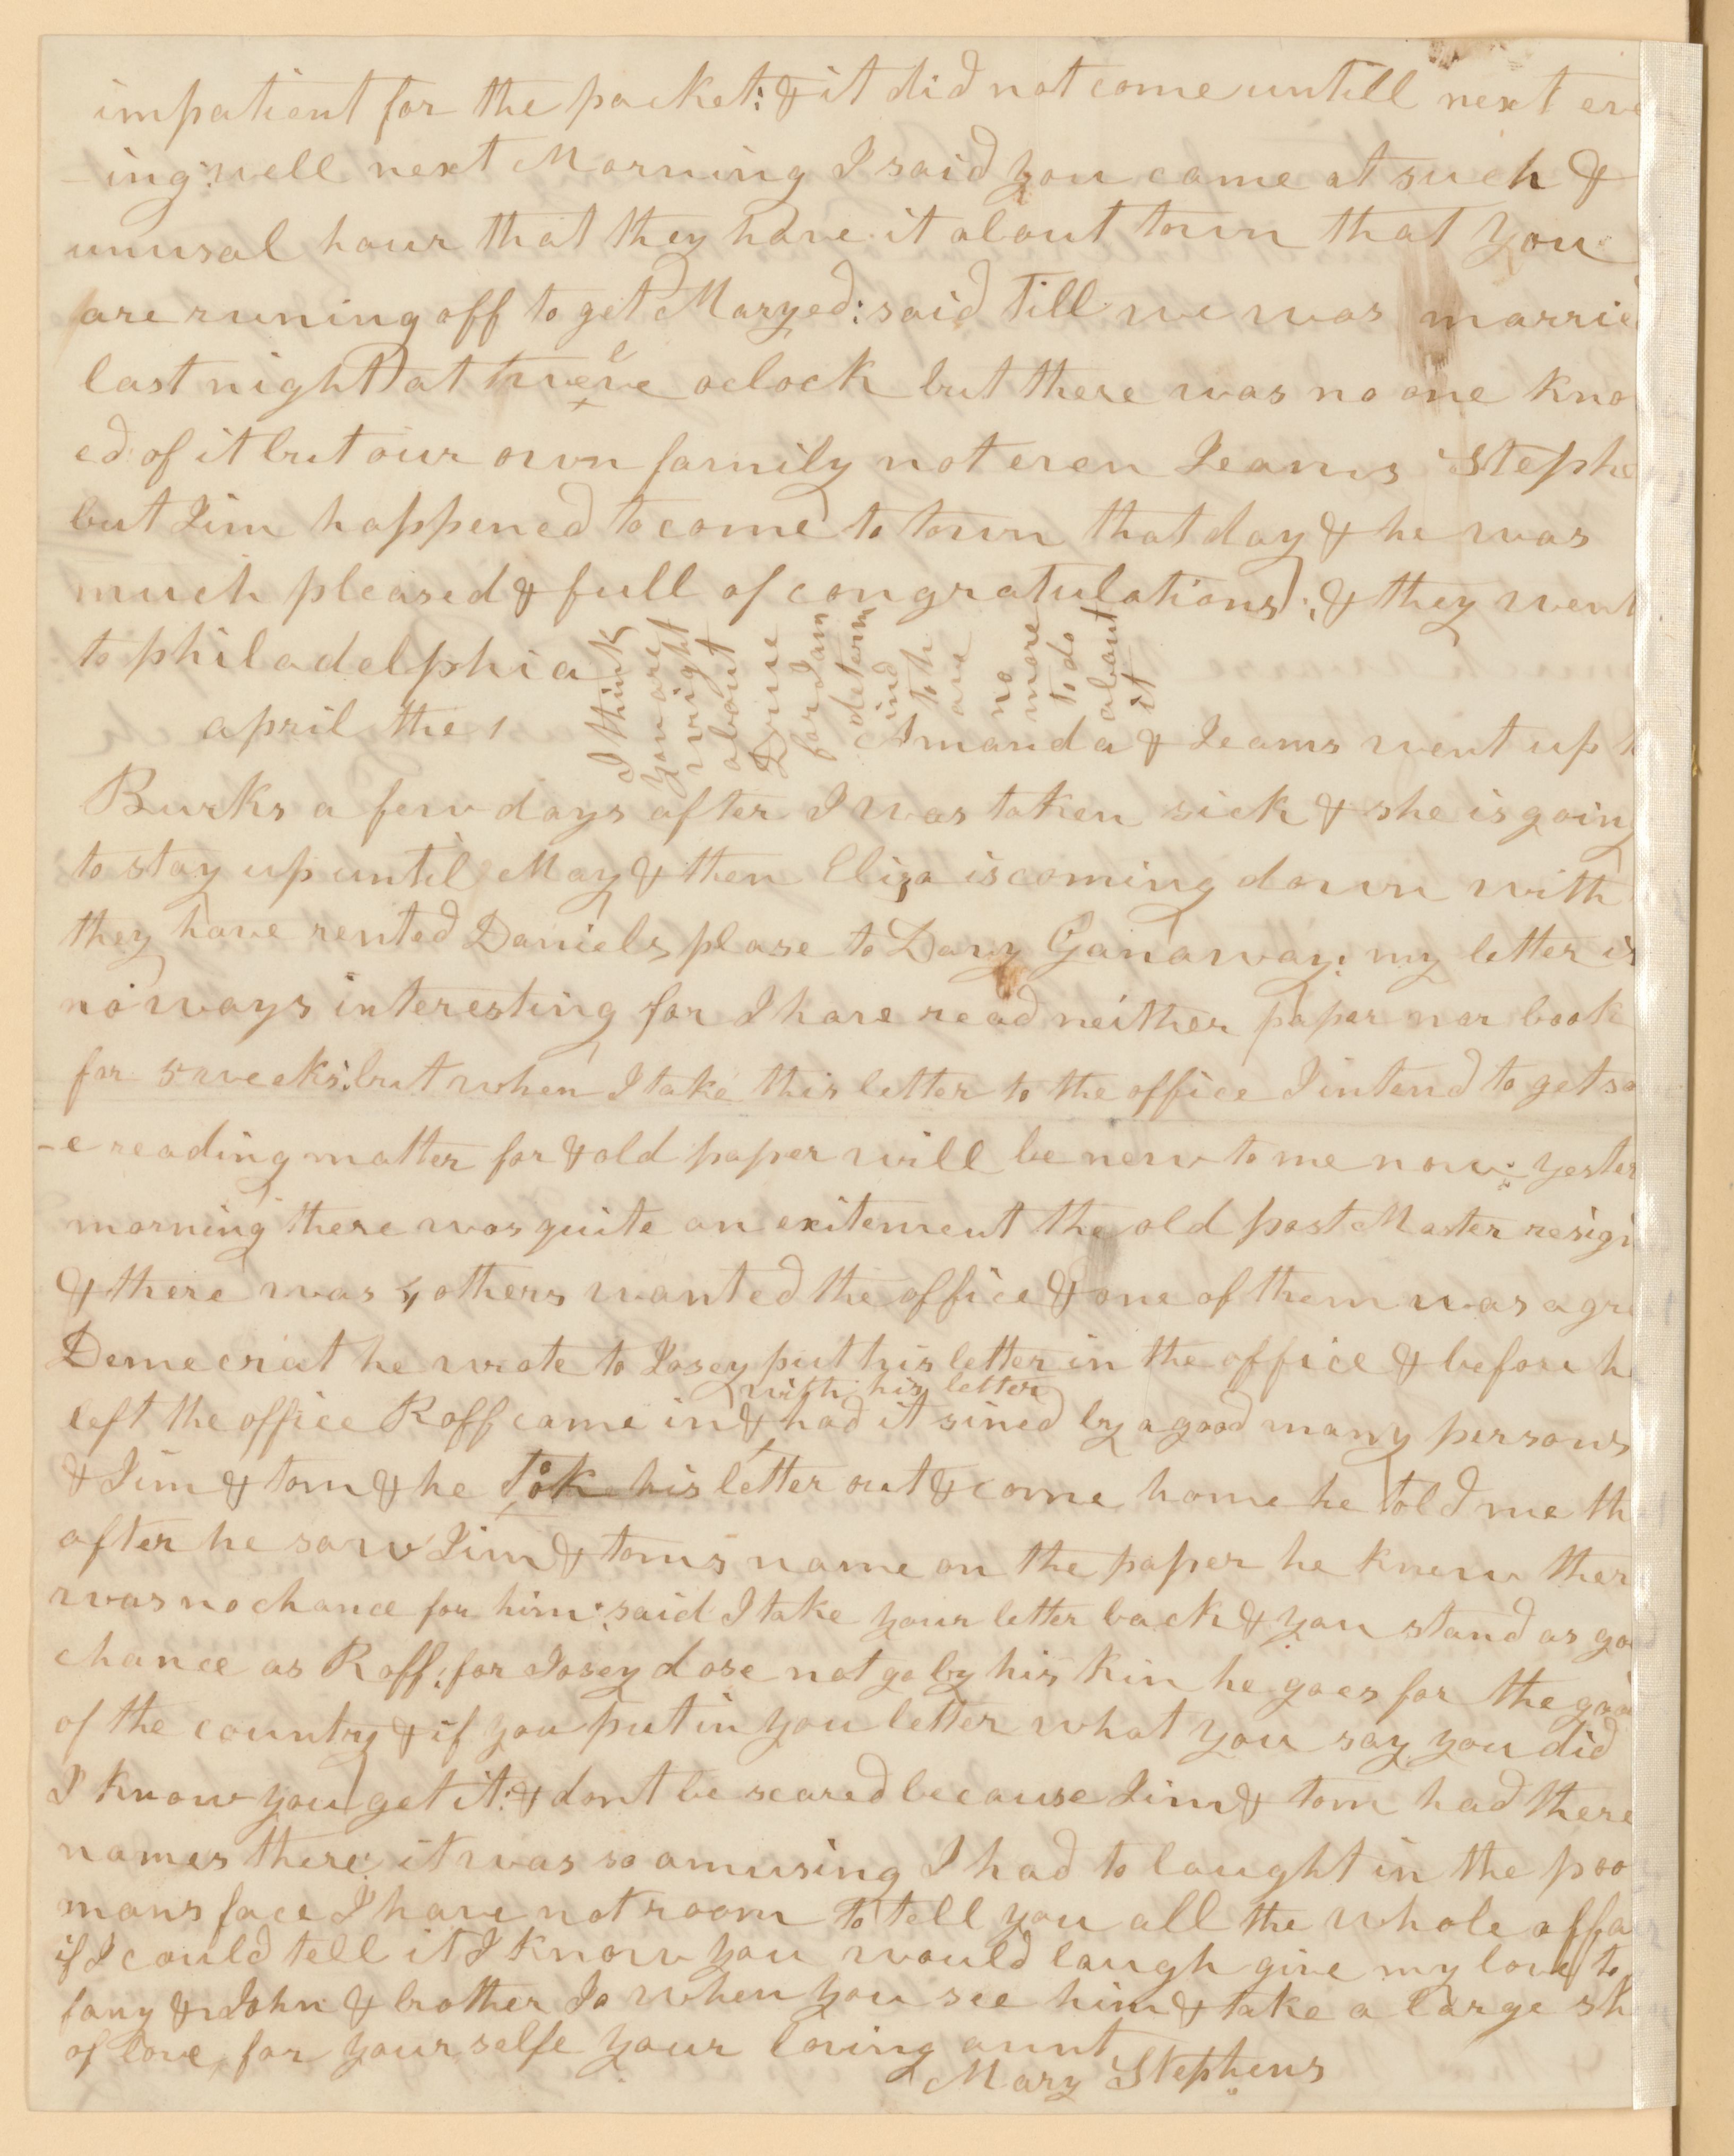 impatient for the packet: & it did not come untill next eve
-ing: well next Morning I said you came at such &
unusal hour that they have it about town that you
are runing off to get Maryed: said Till we was married
last night at twelve oclock but there was no one kno
ed of it but our own family not even Jeams Stephe
but Jim happened to come to town that day & he was
much pleased & full of congratulations): & they went
to philadelphia
I think
you are
wright
about
for I am
determ
ind
to h
ave
no
more
to do
about
it
april the 1 Amanda & Jeams went up t
Burks a few days after I was taken sick & she is going
to stay up until May & then Eliza is coming down with
they have rented Daniels plase to Davy Ganaway: my letter is
no ways interesting for I have read neither paper nor book
for 5 weeks: but when I take this letter to the office I intend to get so
-e reading matter for & old paper will be new to me now: yester
morning there was quite an exitement the old post Master resign
& there was 4 others wanted the office & one of them was a gr
Demecrat he wrote to Josey put his letter in the office & before h
with his letter
left the office Roff came in & had it sined by a good many persons
& Jim & tom & he Took his letter out & come home he told me th
after he saw Jim & toms name on the paper he knew ther
was no chance for him: said I take your letter back & you stand as go
chance as Roff: for Josey dose not go by his kin he goes for the good
of the country & if you put in you letter what you say you did
I know you get it: & dont be scared because Jim & tom had there
names there: it was so amusing I had to laught in the poo
mans face I have not room to tell you all the whole affa
if I could tell it I know you would laugh give my love to
fany & John & brother Jo when you see him & take a large sh
of love for your selfe your loving aunt
Mary Stephens